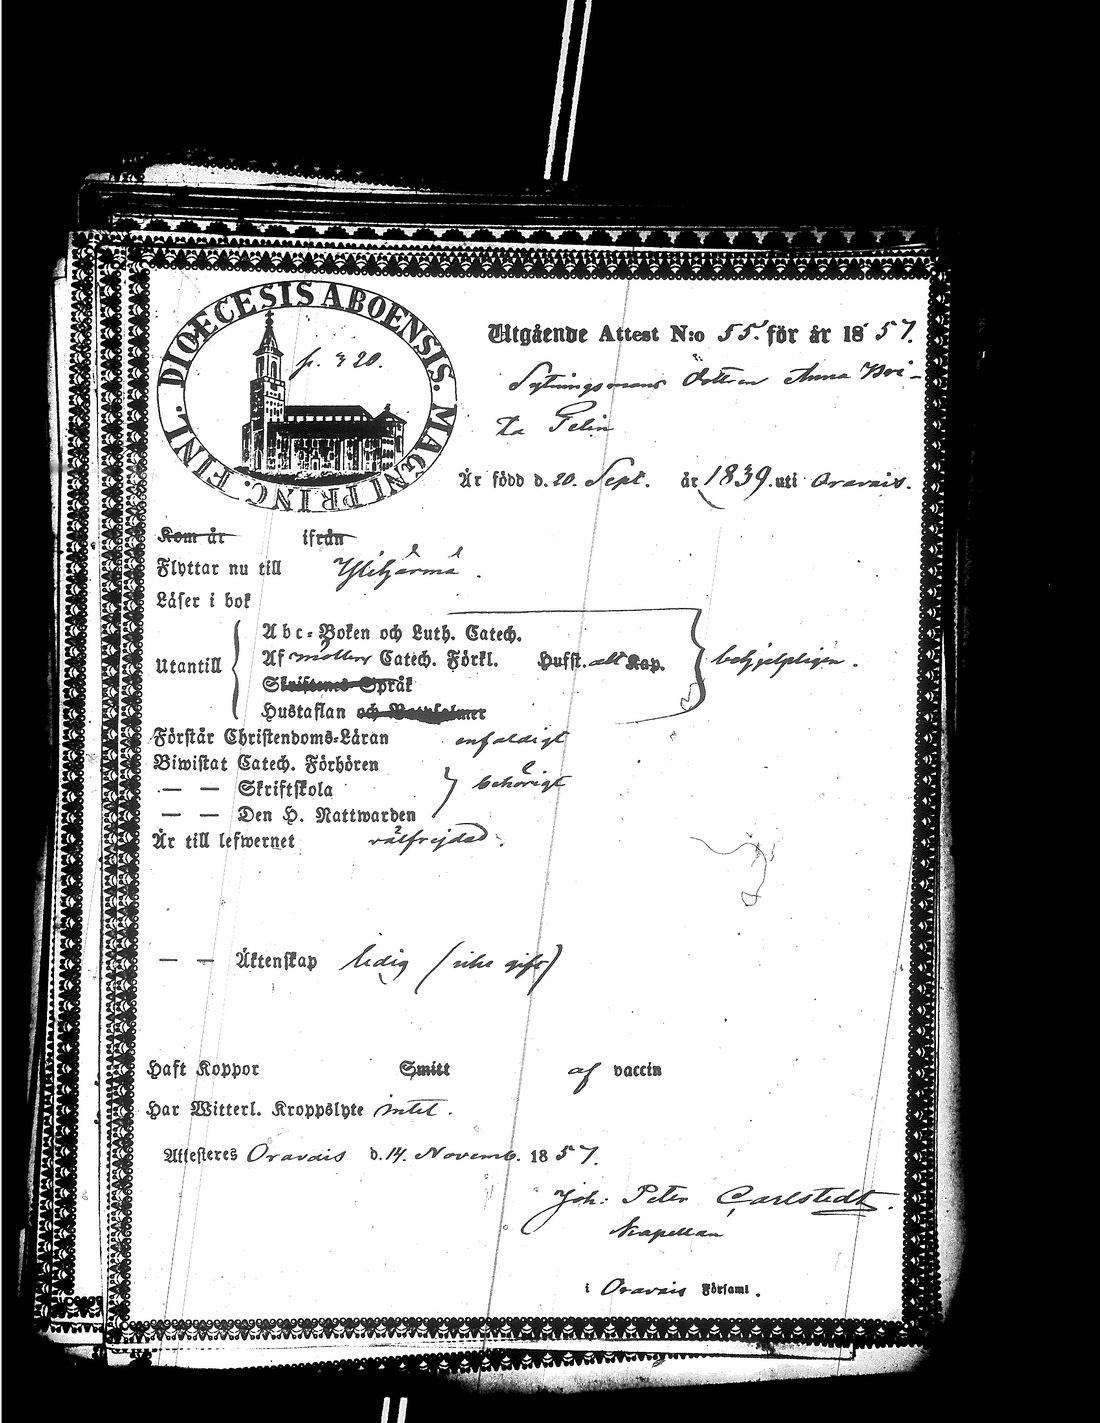 DIOECESIS ABOENSIS. MAGNI PRINC. FINL.
p. 320.
Utgående Attest N:o 55. för år 1857.
Sytningsmans Dottren Anna Bri-
ta Pelin
År född d. 20. Sept. år 1839. uti Oravais.
Kom år ifrån
Flyttar nu till Ylihärmä.
Läser i bok
Abc-Boken och Luth. Catech.
Utantill Af möllers Catech. Förkl. Husst. allt Kap. behjelpligen.
Skriftenes Språk
Hustaflan och
Förstår Christendoms-Läran enfaldigt
Biwistat Catech. Förhören
— — Skriftskola behörigt
— — Den H. Nattwarden
Är till lefwernet välfrejdad.
— — Äktenskap ledig (icke gift)
Haft Koppor Smitt af vaccin
Har Witterl. Kroppslyte intet.
Attesteres Oravais d. 14. Novemb. 1857.
Joh: Peter Carlstedt.
Kapellan
i Oravais Församl.